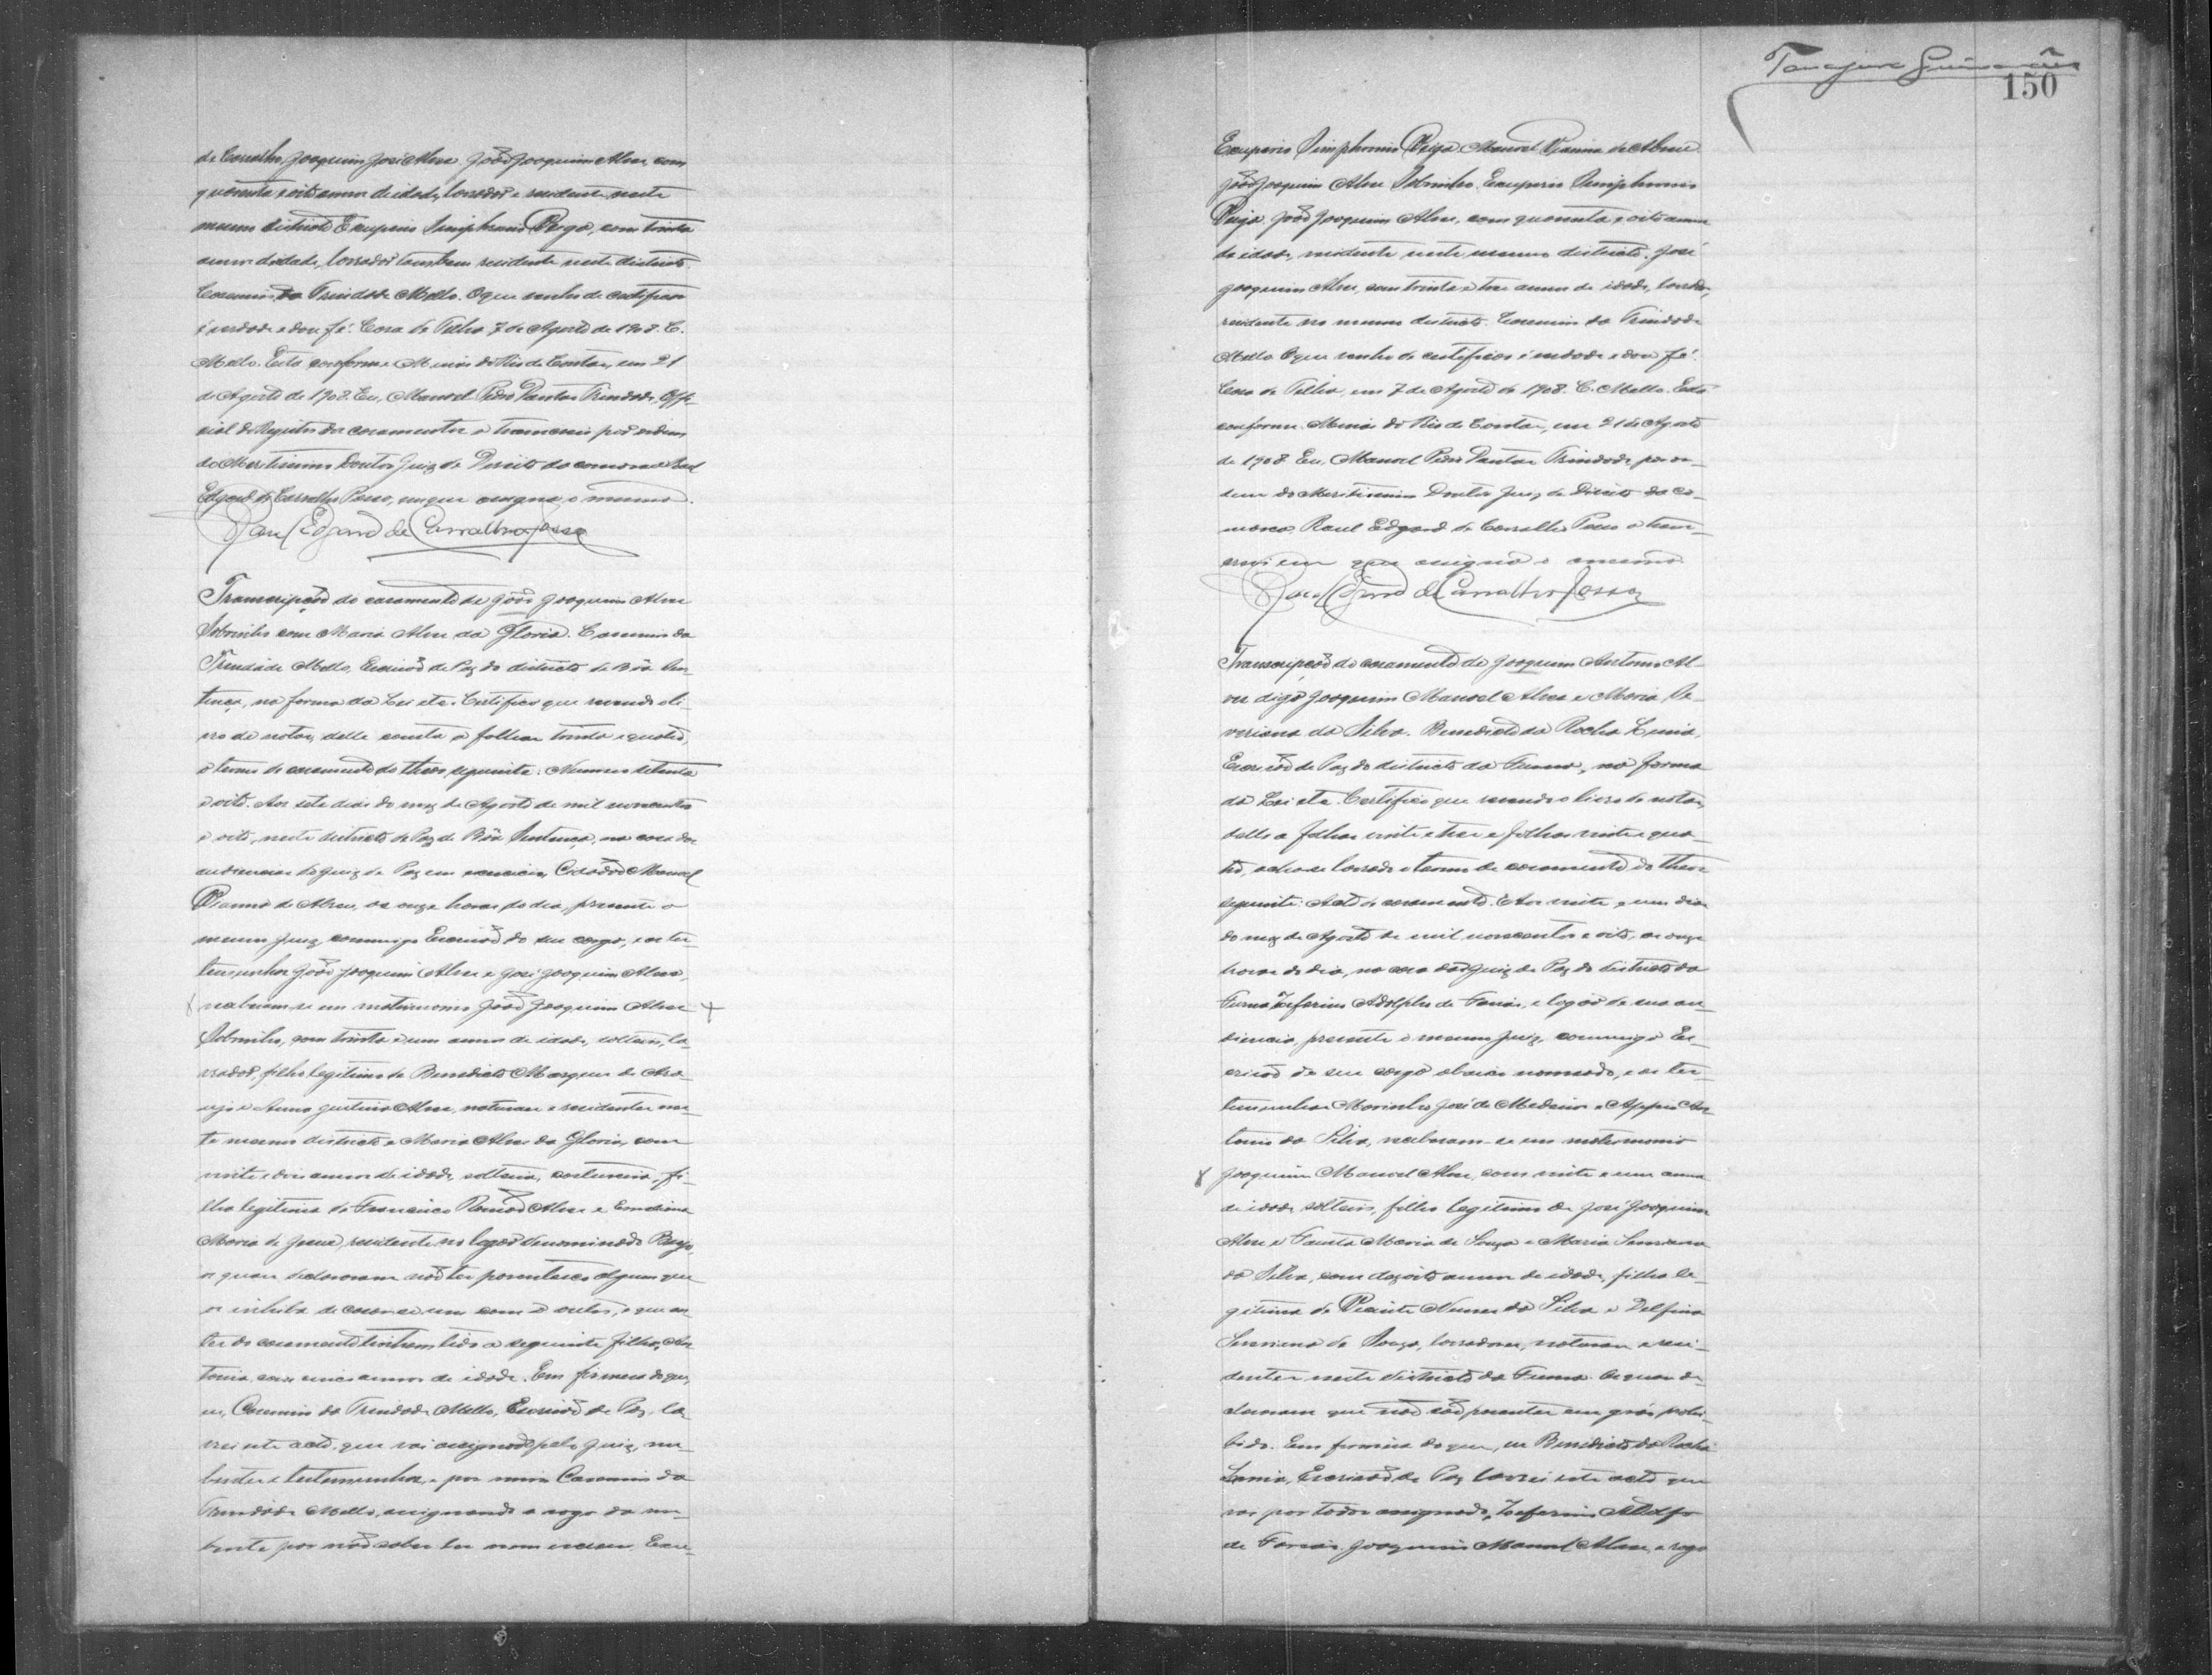 de Carvalho, Joaquim José Alves. João Joaquim Alves, com
quarenta e oito annos de idade, lavrador e residente neste
mesmo districto. Exuperio Simphronio Veiga, com trinta
annos de idade, lavrador tambem residente neste districto.
Casemiro da Trindade Mello. O que venho de certificar
é verdade e dou fé. Casa de Telha 7 de Agosto de 1908. C.
Mello. Está conforme. Minas do Rio de Contas, em 21
de Agosto de 1908. Eu, Manoel Pedro Dantas Trindade, Offi-
cial do Registro dos casamentos o transcrevi por ordem
do Meritissimo Doutor Juiz de Direito da comarca Raul
Edgard de Carvalho Pessoa, em que assigna o mesmo.
Raul Edgard de Carvalho Pessoa
Transcripção do casamento de João Joaquim Alves
Sobrinho com Maria Alves da Gloria. Casemiro da
Trindade Mello, Escrivão de Paz do districto de Bôa Sen-
tença, na forma da Lei etc. Certifico que revendo o li-
vro de notas, delle consta a folhas trinta e quatro,
o termo de casamento do theor seguinte: Numero setenta
e oito. Aos sete dias do mez de Agosto de mil novecentos
e oito, neste districto de Paz de Bôa Sentença, na casa das
audiencias do Juiz de Paz em exercicio, Cidadão Manoel
Vianna de Abreu, as onze horas do dia, presente o
mesmo Juiz commigo Escrivão do seu cargo, e as tes-
temunhas João Joaquim Alves e José Joaquim Alves,
receberam-se em matrimonio João Joaquim Alves
Sobrinho, com trinta e um annos de idade, solteiro, la-
vrador, filho legitimo de Benedicto Marques de Ara-
ujo e Anna Justina Alves, naturaes e residentes nes-
te mesmo districto e Maria Alves da Gloria, com
vinte e dois annos de idade, solteira, costureira, fi-
lha legitima de Francisco Ramos Alves e
Maria de Jesus, residente no logar denominado
os quaes declararam não ter parentesco algum que
os inhiba de casar-se um com o outro, e que an-
tes do casamento tinham tido a seguinte filha, An-
tonia, com cinco annos de idade. Em firmeza do que,
eu, Casemiro da Trindade Mello, Escrivão de Paz, la-
vrei este acto, que vai assignado pelo Juiz, nu-
bentes e testemunhas, e por mim Casemiro da
Trindade Mello, assignando a rogo da nu-
bente por não saber ler nem escrever Exu-
Tanajura Guimarães
150
Exuperio Simphronio Veiga. Manoel Vianna de Abreu.
João Joaquim Alves Sobrinho. Exuperio Simphronio
Veiga. João Joaquim Alves, com quarenta e oito annos
de idade, residente neste mesmo districto. José
Joaquim Alves, com trinta e tres annos de idade, lavrador,
residente no mesmo districto. Casemiro da Trindade
Mello. O que venho de certificar é verdade e dou fé.
Casa de Telha, em 7 de Agosto de 1908. C. Mello. Está
conforme. Minas do Rio de Contas, em 21 de Agosto
de 1908. Eu, Manoel Pedro Dantas Trindade, por or-
dem do Meritissimo Doutor Juiz de Direito da co-
marca, Raul Edgard de Carvalho Pessoa o trans-
crevi em que assigna o mesmo.
Raul Edgard de Carvalho Pessoa
Transcripção do casamento de Joaquim Antonio Al-
ves digo Joaquim Manoel Alves e Maria Se-
veriana da Silva. Benedicto da Rocha Lima,
Escrivão de Paz do districto da Furna, na forma
da Lei etc. Certifico que revendo o livro de notas,
delle a folhas vinte e tres e folhas vinte e qua-
tro, acha-se lavrado o termo de casamento do theor
seguinte: Acto de casamento. Aos vinte e um dias
do mez de Agosto de mil novecentos e oito, as onze
horas do dia, na casa do Juiz de Paz do districto da
Furna Zeferino Adolpho de Farias, e logar de sua au-
diencia, presente o mesmo Juiz, commigo Es-
crivão de seu cargo abaixo nomeado, e as tes-
temunhas Marinho José de Medeiros e An-
tonio da Silva, receberam-se em matrimonio
Joaquim Manoel Alves, com vinte e um annos
de idade solteiro, filho legitimo de José Joaquim
Alves e Fausta Maria de Souza e Maria Severiana
da Silva, com dezoito annos de idade, filha le-
gitima de Vicente Nunes da Silva e Delfina
Severiana de Souza, lavradores, naturaes e resi-
dentes neste districto da Furna. Os quaes de-
clararam que não são parentes em gráo prohi-
bido. Em firmeza do que, eu Benedicto da Rocha
Lima, Escrivão de Paz lavrei este acto que
vai por todos assignado, Zeferino Adolfo
de Farias. Joaquim Manoel Alves, a rogo